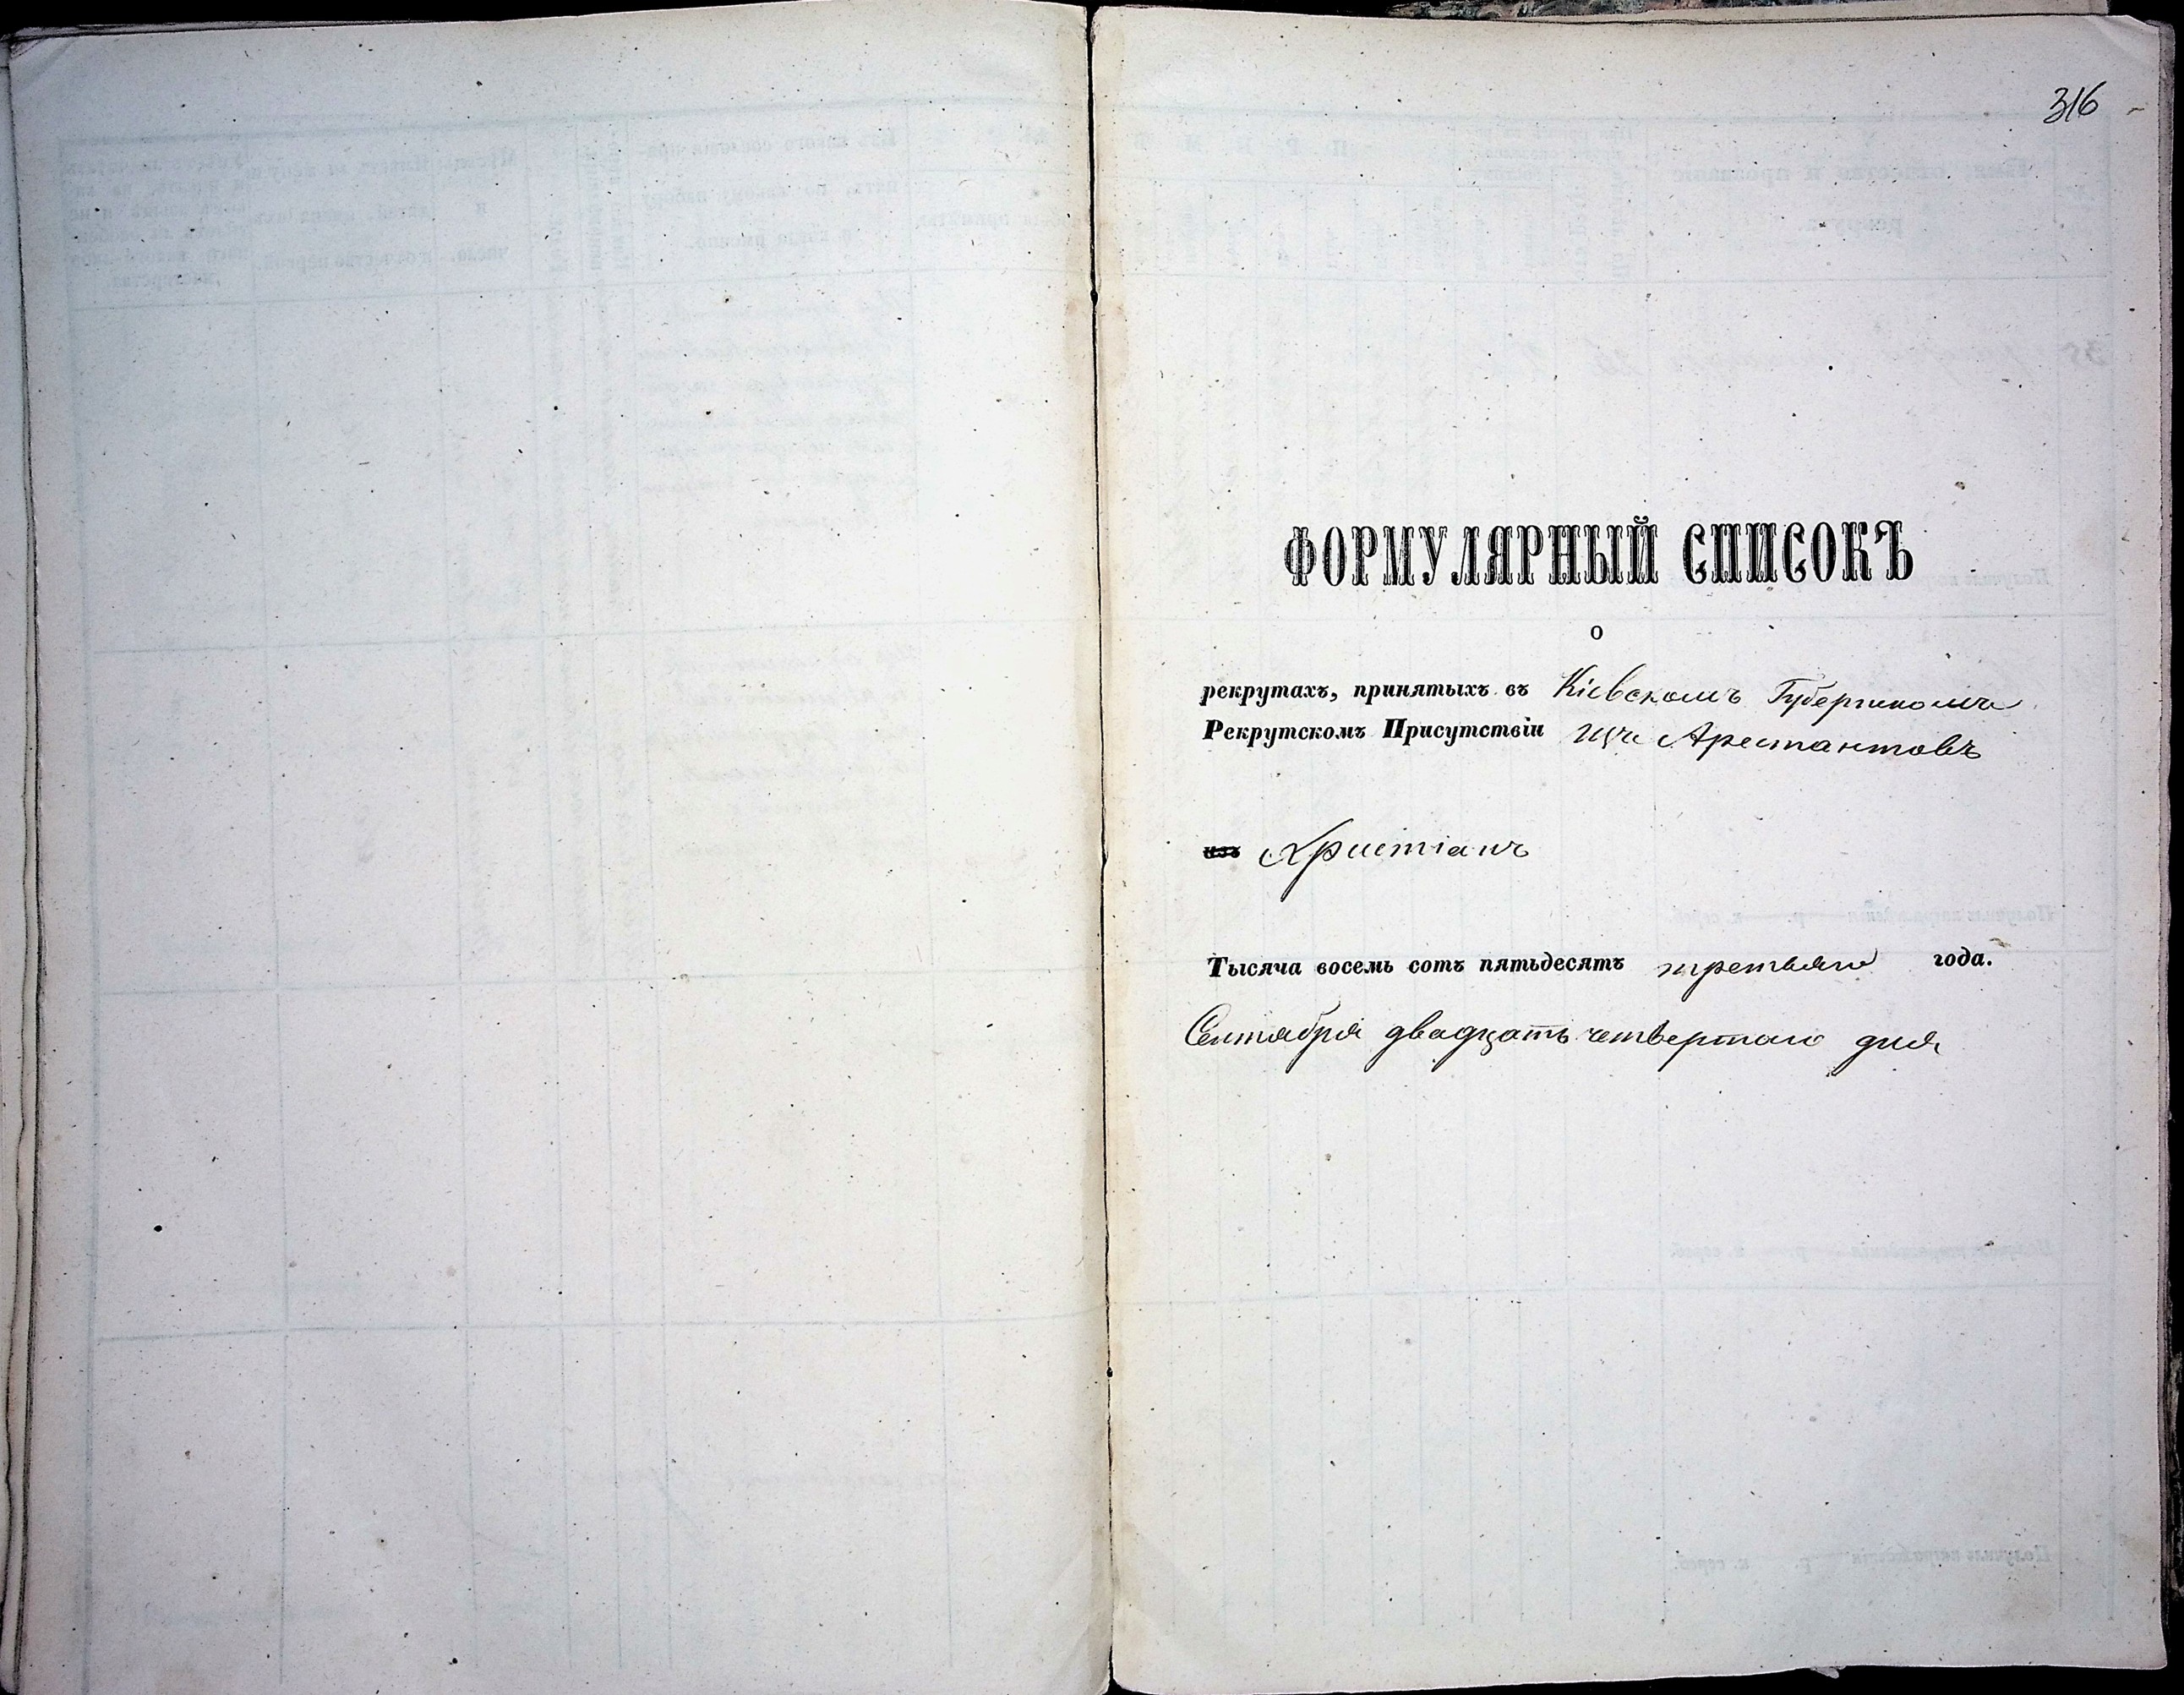 316
ФОРМУЛЯРНЫЙ СПИСОКЪ
о
рекрутахъ, принятыхъ въ Кіевскомъ Губернскомъ
Рекрутскомъ Присутствіи изъ Арестантовъ
изъ Христіанъ
Тысяча восемь сотъ пятьдесятъ третьяго года.
Сентября двадцать четвертаго дня